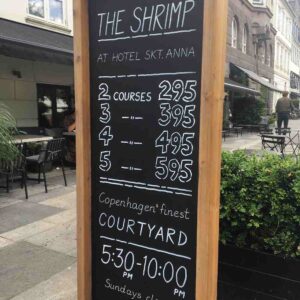 THE SHRIMP
AT HOTEL SKT. ANNA
2 COURSES 295
3 –"– 395
4 –"– 495
5 –"– 595
Copenhagen's finest
COURTYARD
5:30-10:00
PM PM
Sundays